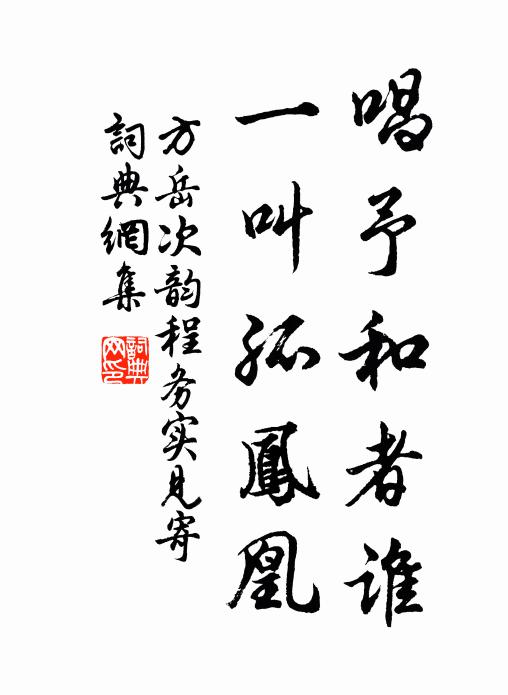 唱予和者谁
一叫孤鳳凰
方岳次韵程务实见寄
詞典網集
詞典网印